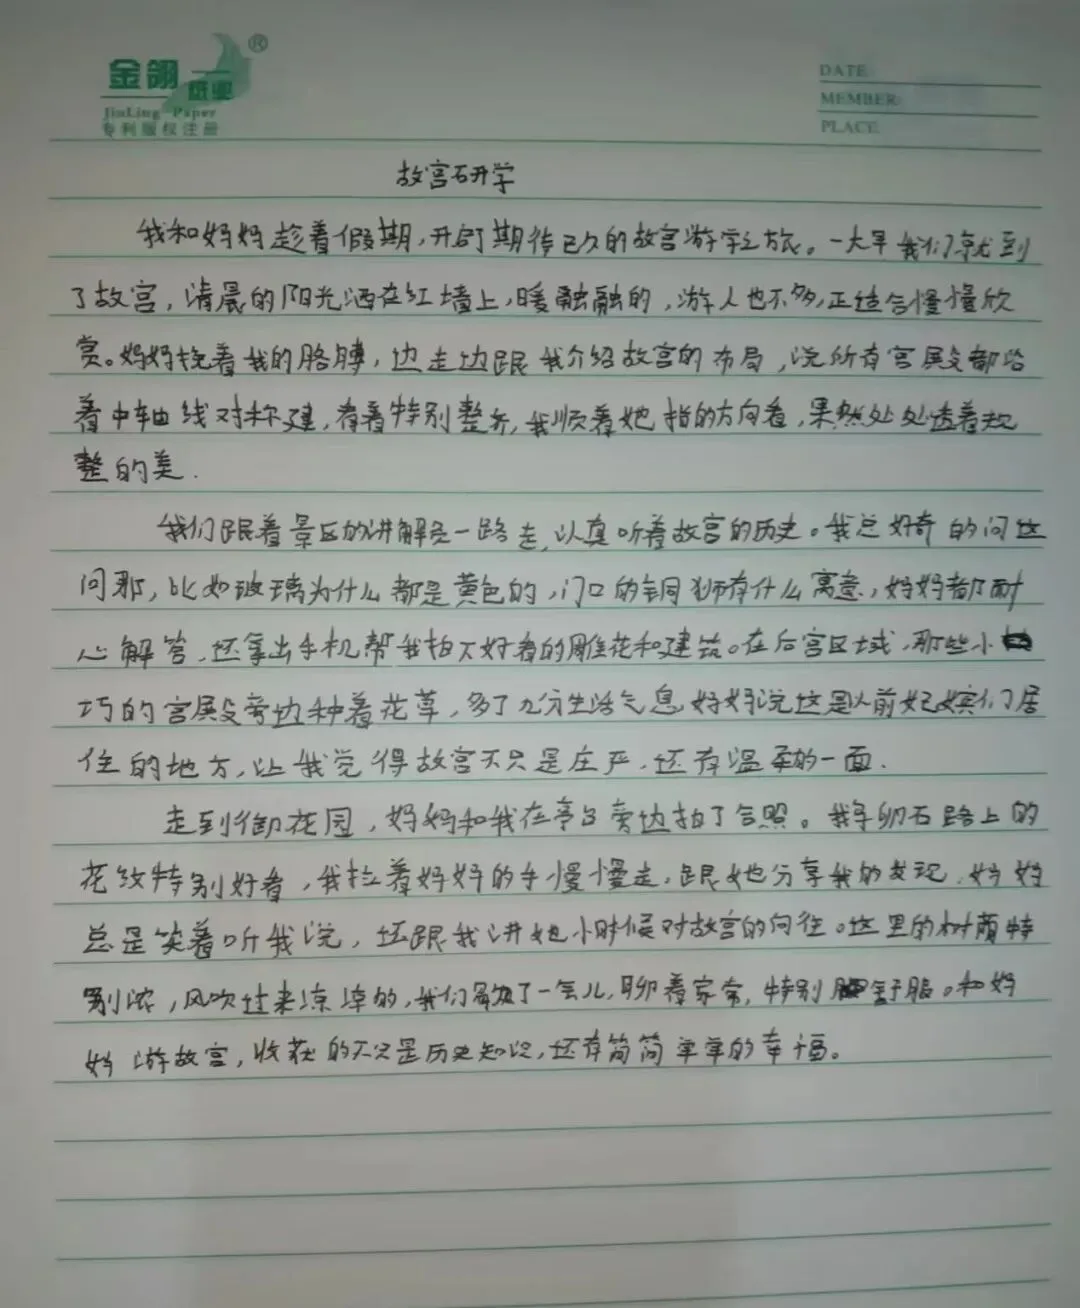 金翎
纸业
®
JinLing Paper
专利版权注册
DATE:
MEMBER:
PLACE:
故宫研学
我和妈妈趁着假期,开启期待已久的故宫游学之旅。一大早我们就到
了故宫,清晨的阳光洒在红墙上,暖融融的,游人也不多,正适合慢慢欣
赏。妈妈挽着我的胳膊,边走边跟我介绍故宫的布局,说所有宫殿都沿
着中轴线对称建,看着特别整齐,我顺着她指的方向看,果然处处透着规
整的美.
我们跟着景区的讲解员一路走,认真听着故宫的历史。我总好奇的问这
问那,比如玻璃为什么都是黄色的,门口的铜狮有什么寓意,妈妈都耐
心解答,还拿出手机帮我拍下好看的雕花和建筑。在后宫区域,那些小
巧的宫殿旁边种着花草,多了几分生活气息,妈妈说这是以前妃嫔们居
住的地方,让我觉得故宫不只是庄严,还有温柔的一面.
走到御花园,妈妈和我在亭子旁边拍了合照。我、卵石路上的
花纹特别好看,我拉着妈妈的手慢慢走,跟她分享我的发现,妈妈
总是笑着听我说,还跟我讲她小时候对故宫的向往。这里的树荫特
别浓,风吹过来凉凉的,我们歇了一会儿,聊着家常,特别舒服。和妈
妈游故宫,收获的不只是历史知识,还有简简单单的幸福。